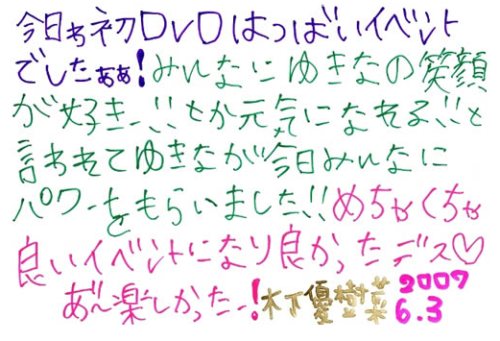 今日ゎ初DVDはっばいイベント
でしたぁぁ!みんなにゆきなの笑顔
が好きー!!とか元気になれる!!と
言われてゆきなが今日みんなに
パワーをもらいました!!めちゃくちゃ
良いイベントになり良かったデス♡
あ"~楽しかったー!木下優樹菜 2007
6.3